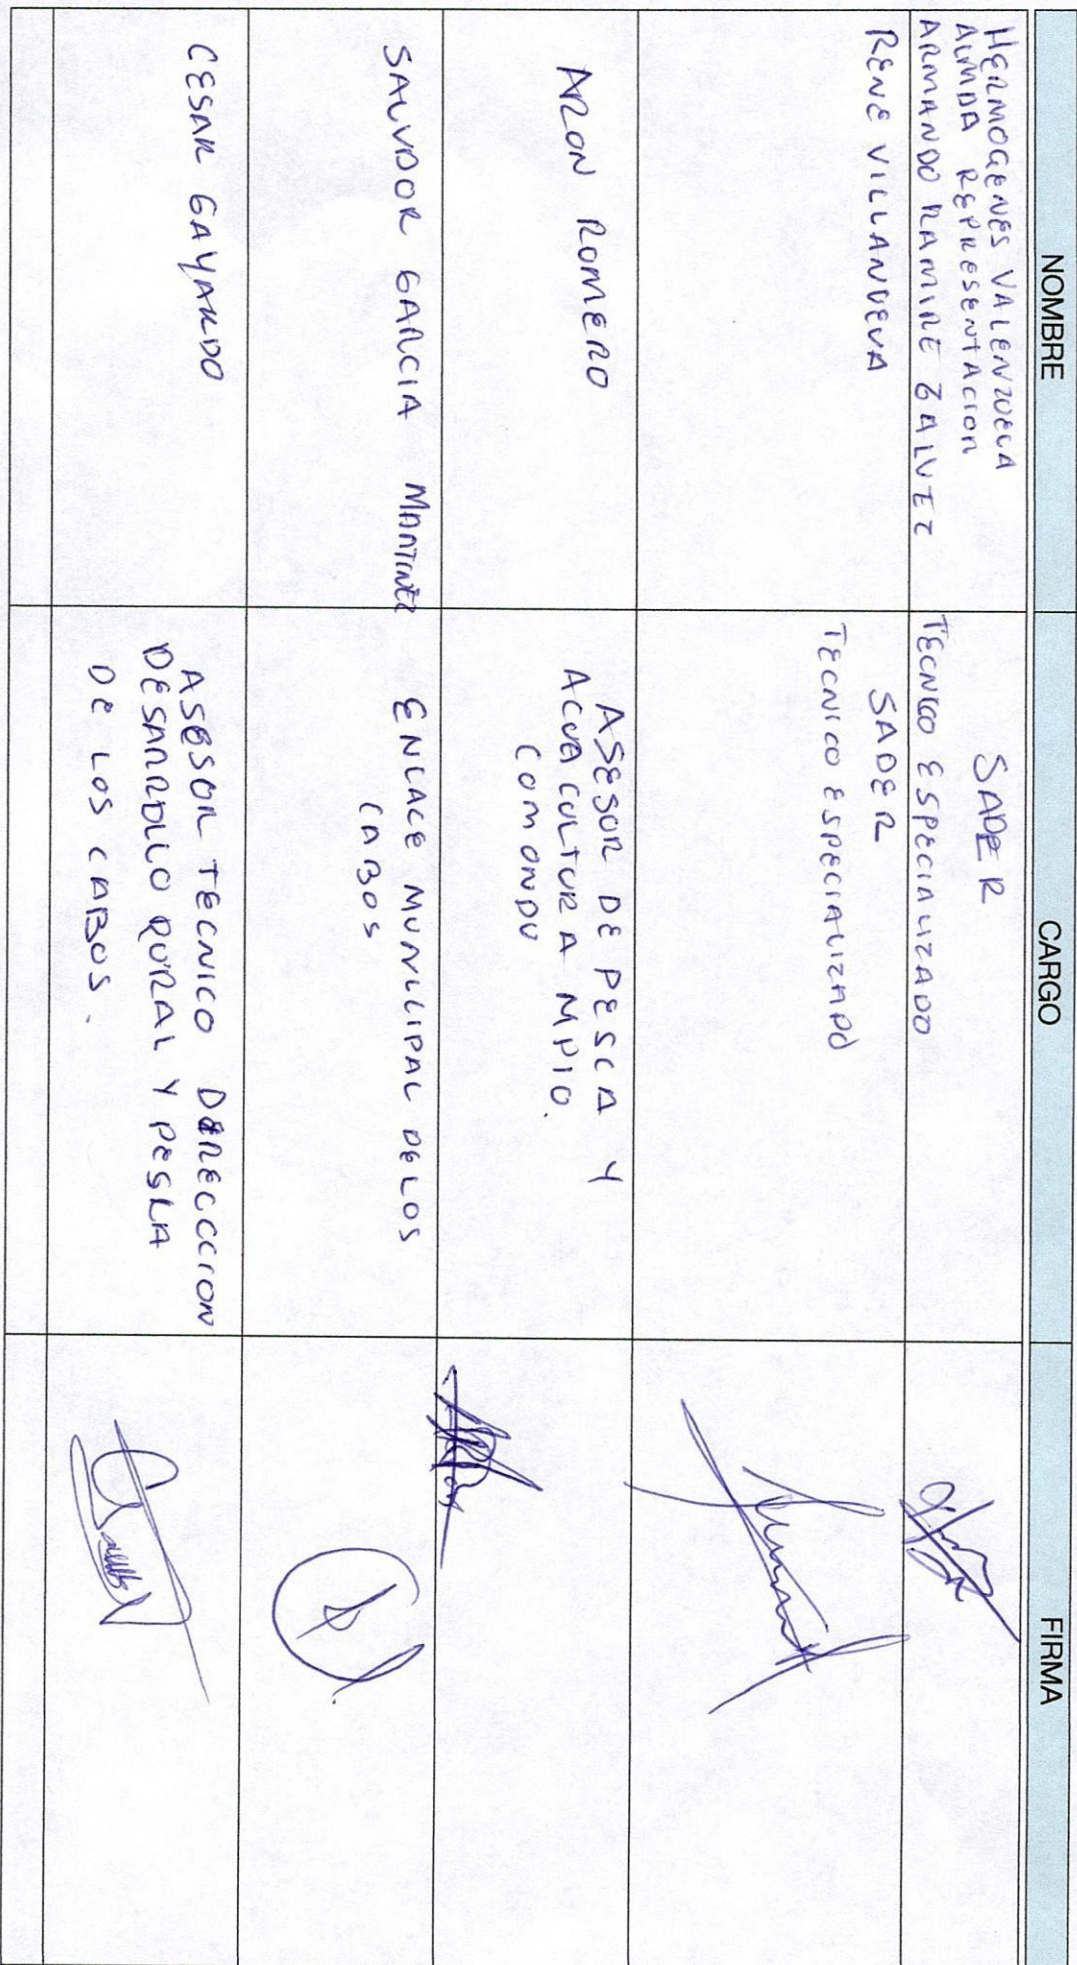 NOMBRE CARGO FIRMA
HERMOGENES VALENZUELA
ALMDA REPRESENTACION
SADER
ARMANDO RAMIRE GALVEZ
TECNICO ESPECIALIZADO
RENE VILLANUEVA
SADER
TECNICO ESPECIALIZADO
ARON ROMERO
ASESOR DE PESCA Y
ACUACULTURA MPIO.
COMONDU
SALVADOR GARCIA MARTINEZ
ENLACE MUNICIPAL DE LOS
CABOS
CESAR GAYARDO
ASESOR TECNICO DIRECCCION
DESARROLLO RURAL Y PESCA
DE LOS CABOS.